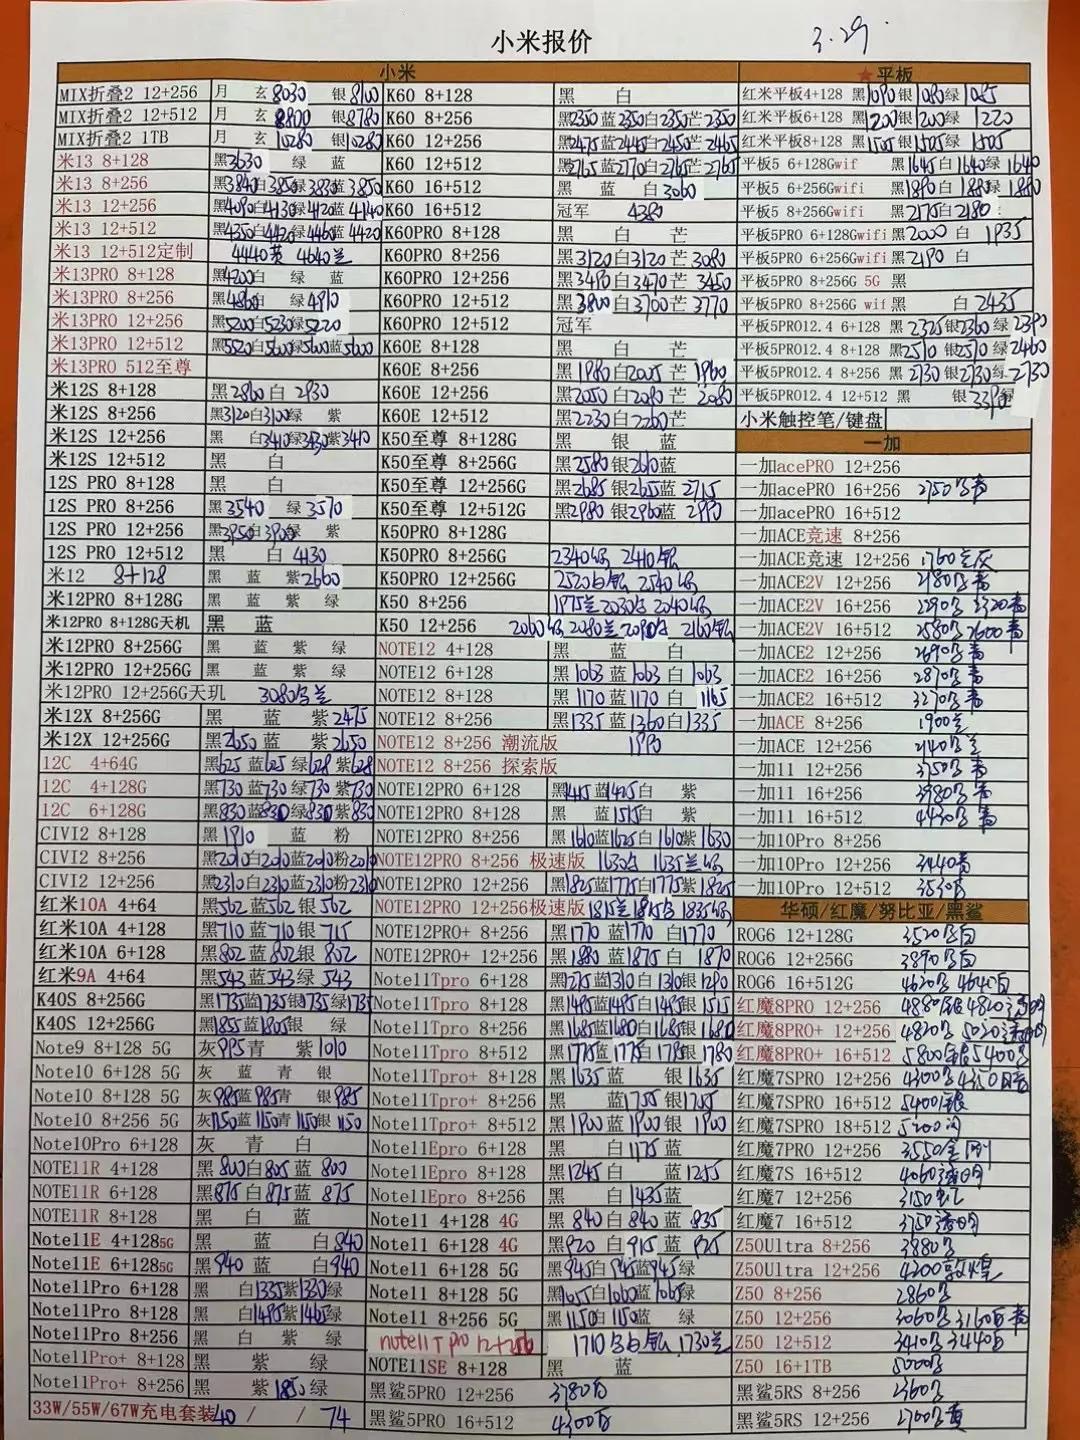 小米报价
3.29
小米
MIX折叠2 12+256 月 玄8030 银8100
MIX折叠2 12+512 月 玄8800 银8780
MIX折叠2 1TB 月 玄10280 银10280
米13 8+128 黑3630 绿 蓝
米13 8+256 黑3840白3850绿3830蓝3850
米13 12+256 黑4090白4130绿4120蓝4140
米13 12+512 黑4350白4420绿4460蓝4420
米13 12+512定制 4440黄 4640兰
米13PRO 8+128 黑4200白 绿 蓝
米13PRO 8+256 黑4860白 绿4910
米13PRO 12+256 黑5200白5230绿5220
米13PRO 12+512 黑5520白5600绿5600蓝5600
米13PRO 512至尊
米12S 8+128 黑2860白 2930
米12S 8+256 黑3120白3100绿 紫
米12S 12+256 黑 白3410绿3430紫3410
米12S 12+512 黑 白
12S PRO 8+128 黑 白
12S PRO 8+256 黑3540 绿3570
12S PRO 12+256 黑3950白3900绿 紫
12S PRO 12+512 黑 白4130
米12 8+128 黑 蓝 紫2660
米12PRO 8+128G 黑 蓝 紫 绿
米12PRO 8+128G天机 黑 蓝
米12PRO 8+256G 黑 蓝 紫 绿
米12PRO 12+256G 黑 蓝 紫 绿
米12PRO 12+256G天玑 3080
米12X 8+256G 黑 蓝 紫2475
米12X 12+256G 黑2650蓝 紫2650
12C 4+64G 黑625蓝625绿628紫628
12C 4+128G 黑730蓝730绿730紫730
12C 6+128G 黑830蓝830绿830紫830
CIVI2 8+128 黑1910 蓝 粉
CIVI2 8+256 黑2010白2010蓝2010粉2010
CIVI2 12+256 黑2310白2310蓝2310粉2310
红米10A 4+64 黑562蓝562银562
红米10A 4+128 黑710蓝710银715
红米10A 6+128 黑802蓝802银802
红米9A 4+64 黑543蓝543绿543
K40S 8+256G 黑1735蓝1735银1735绿1735
K40S 12+256G 黑1855蓝1805银 绿
Note9 8+128 5G 灰995青 紫1010
Note10 6+128 5G 灰 蓝 青 银
Note10 8+128 5G 灰985蓝985青 银985
Note10 8+256 5G 灰1150蓝1150青1150银1150
Note10Pro 6+128 灰 青 白
NOTE11R 4+128 黑800白805蓝800
NOTE11R 6+128 黑875白875蓝875
NOTE11R 8+128 黑 白 蓝
Note11E 4+1285G 黑 蓝 白840
Note11E 6+1285G 黑940蓝 白940
Note11Pro 6+128 黑 白1335紫1330绿
Note11Pro 8+128 黑 白1485紫1465绿
Note11Pro 8+256 黑 白 紫 绿
Note11Pro+ 8+128 黑 紫 绿
Note11Pro+ 8+256 黑 紫1850绿
33W/55W/67W充电套装40 / / 74
K60 8+128 黑 白
K60 8+256 黑2350蓝2350白2350芒2350
K60 12+256 黑2475蓝2445白2450芒2465
K60 12+512 黑2765蓝2770白2765芒2765
K60 16+512 黑 蓝 白3060
K60 16+512 冠军 4380
K60PRO 8+128 黑 白 芒
K60PRO 8+256 黑3120白3120芒3080
K60PRO 12+256 黑3490白3470芒3450
K60PRO 12+512 黑3800白3700芒3770
K60PRO 12+512 冠军
K60E 8+128 黑 白 芒
K60E 8+256 黑1980白2005芒1960
K60E 12+256 黑2050白2090芒2080
K60E 12+512 黑2230白2260芒
K50至尊 8+128G 黑 银 蓝
K50至尊 8+256G 黑2580银2610蓝
K50至尊 12+256G 黑2685银2655蓝2715
K50至尊 12+512G 黑2980银2960蓝2990
K50PRO 8+128G
K50PRO 8+256G 2340 2410
K50PRO 12+256G 2520 2540
K50 8+256 1975兰2030 2040
K50 12+256 2060 2080兰2090 2160
NOTE12 4+128 黑 蓝 白
NOTE12 6+128 黑1063蓝1063白1063
NOTE12 8+128 黑1170蓝1170白1165
NOTE12 8+256 黑1335蓝1360白1335
NOTE12 8+256 潮流版 1990
NOTE12 8+256 探索版
NOTE12PRO 6+128 黑1415蓝1425白 紫
NOTE12PRO 8+128 黑 蓝1515白
NOTE12PRO 8+256 黑1610蓝1625白1610紫1630
NOTE12PRO 8+256 极速版 1630白 1635兰
NOTE12PRO 12+256 黑1825蓝1775白1775紫1825
NOTE12PRO 12+256极速版 1815兰1815白1835
NOTE12PRO+ 8+256 黑1770蓝1770白1770
NOTE12PRO+ 12+256 黑1880蓝1875白1870
Note11Tpro 6+128 黑1275蓝1310白1310银1290
Note11Tpro 8+128 黑1485蓝1485白1485银1515
Note11Tpro 8+256 黑1685蓝1680白1685银1680
Note11Tpro 8+512 黑1775蓝1775白1785银1780
Note11Tpro+ 8+128 黑1635蓝 银1635
Note11Tpro+ 8+256 黑 蓝1755银1755
Note11Tpro+ 8+512 黑1900蓝1900银1900
Note11Epro 6+128 黑 白1175蓝
Note11Epro 8+128 黑1245白 蓝1255
Note11Epro 8+256 黑 白1435蓝
Note11 4+128 4G 黑840白840蓝835
Note11 6+128 4G 黑920白915蓝925
Note11 6+128 5G 黑945白945蓝945绿
Note11 8+128 5G 黑1055白1060蓝1065绿
Note11 8+256 5G 黑1150白1150蓝 绿
note11Tpro 12+256 1710 1730兰
NOTE11SE 8+128 黑 蓝
黑鲨5PRO 12+256 3780白
黑鲨5PRO 16+512 4300白
★平板
红米平板4+128 黑1090银1080绿1085
红米平板6+128 黑1200银1200绿1220
红米平板8+128 黑1505银1505绿1505
平板5 6+128Gwif 黑1645白1640绿1640
平板5 6+256Gwifi 黑1890白1880绿1880
平板5 8+256Gwifi 黑2175白2180
平板5PRO 6+128Gwifi 黑2000白 1935
平板5PRO 6+256Gwifi 黑2190白
平板5PRO 8+256G 5G 黑
平板5PRO 8+256G wif 黑 白2435
平板5PRO12.4 6+128 黑2325银2360绿2390
平板5PRO12.4 8+128 黑2510银2510绿2460
平板5PRO12.4 8+256 黑2730银2730绿2730
平板5PRO12.4 12+512 黑 银3390绿
小米触控笔/键盘
一加
一加acePRO 12+256
一加acePRO 16+256 2750
一加acePRO 16+512
一加ACE竞速 8+256
一加ACE竞速 12+256 1760兰灰
一加ACE2V 12+256 2180
一加ACE2V 16+256 2290 2320
一加ACE2V 16+512 2580 2600
一加ACE2 12+256 2690
一加ACE2 16+256 2870
一加ACE2 16+512 3270
一加ACE 8+256 1900兰
一加ACE 12+256 2140兰
一加11 12+256 3750
一加11 16+256 3980
一加11 16+512 4430
一加10Pro 8+256
一加10Pro 12+256 3440
一加10Pro 12+512 3530
华硕/红魔/努比亚/黑鲨
ROG6 12+128G 3520
ROG6 12+256G 3890
ROG6 16+512G 4620 4640白
红魔8PRO 12+256 4880 4840
红魔8PRO+ 12+256 4820 5020透明
红魔8PRO+ 16+512 5800 5400
红魔7SPRO 12+256 4300
红魔7SPRO 16+512 5400银
红魔7SPRO 18+512 5200
红魔7PRO 12+256 3550
红魔7S 16+512 4060透明
红魔7 12+256 3150红
红魔7 16+512 3750透明
Z50Ultra 8+256 3880
Z50Ultra 12+256 4200敦煌
Z50 8+256 2860
Z50 12+256 3060 3160
Z50 12+512 3410 3440
Z50 16+1TB 5000
黑鲨5RS 8+256 2360
黑鲨5RS 12+256 2700